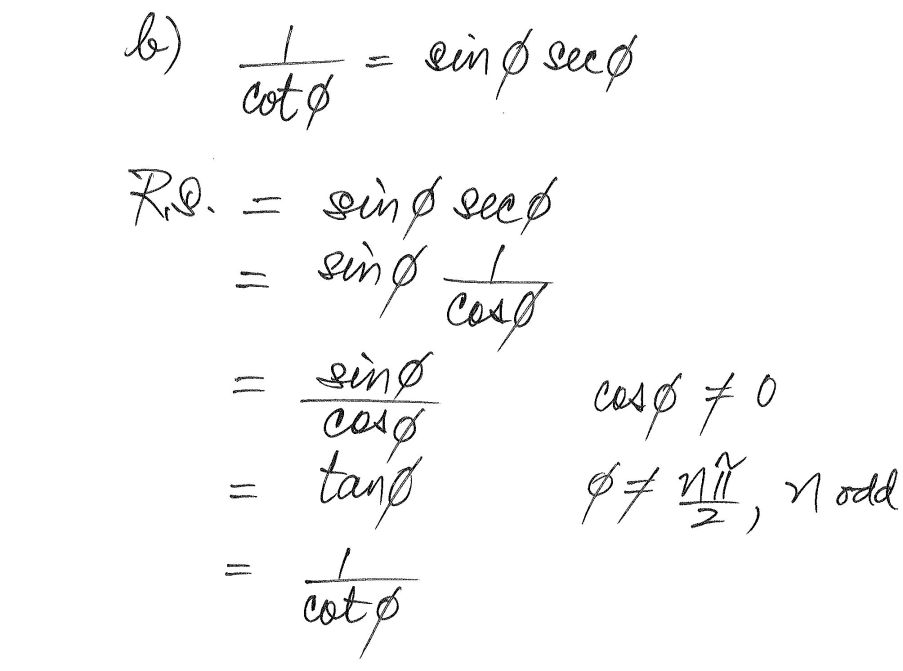 b) 1/cotφ = sinφ secφ
R.S. = sinφ secφ
= sinφ 1/cosφ
= sinφ/cosφ cosφ ≠ 0
= tanφ φ ≠ nπ/2, n odd
= 1/cotφ